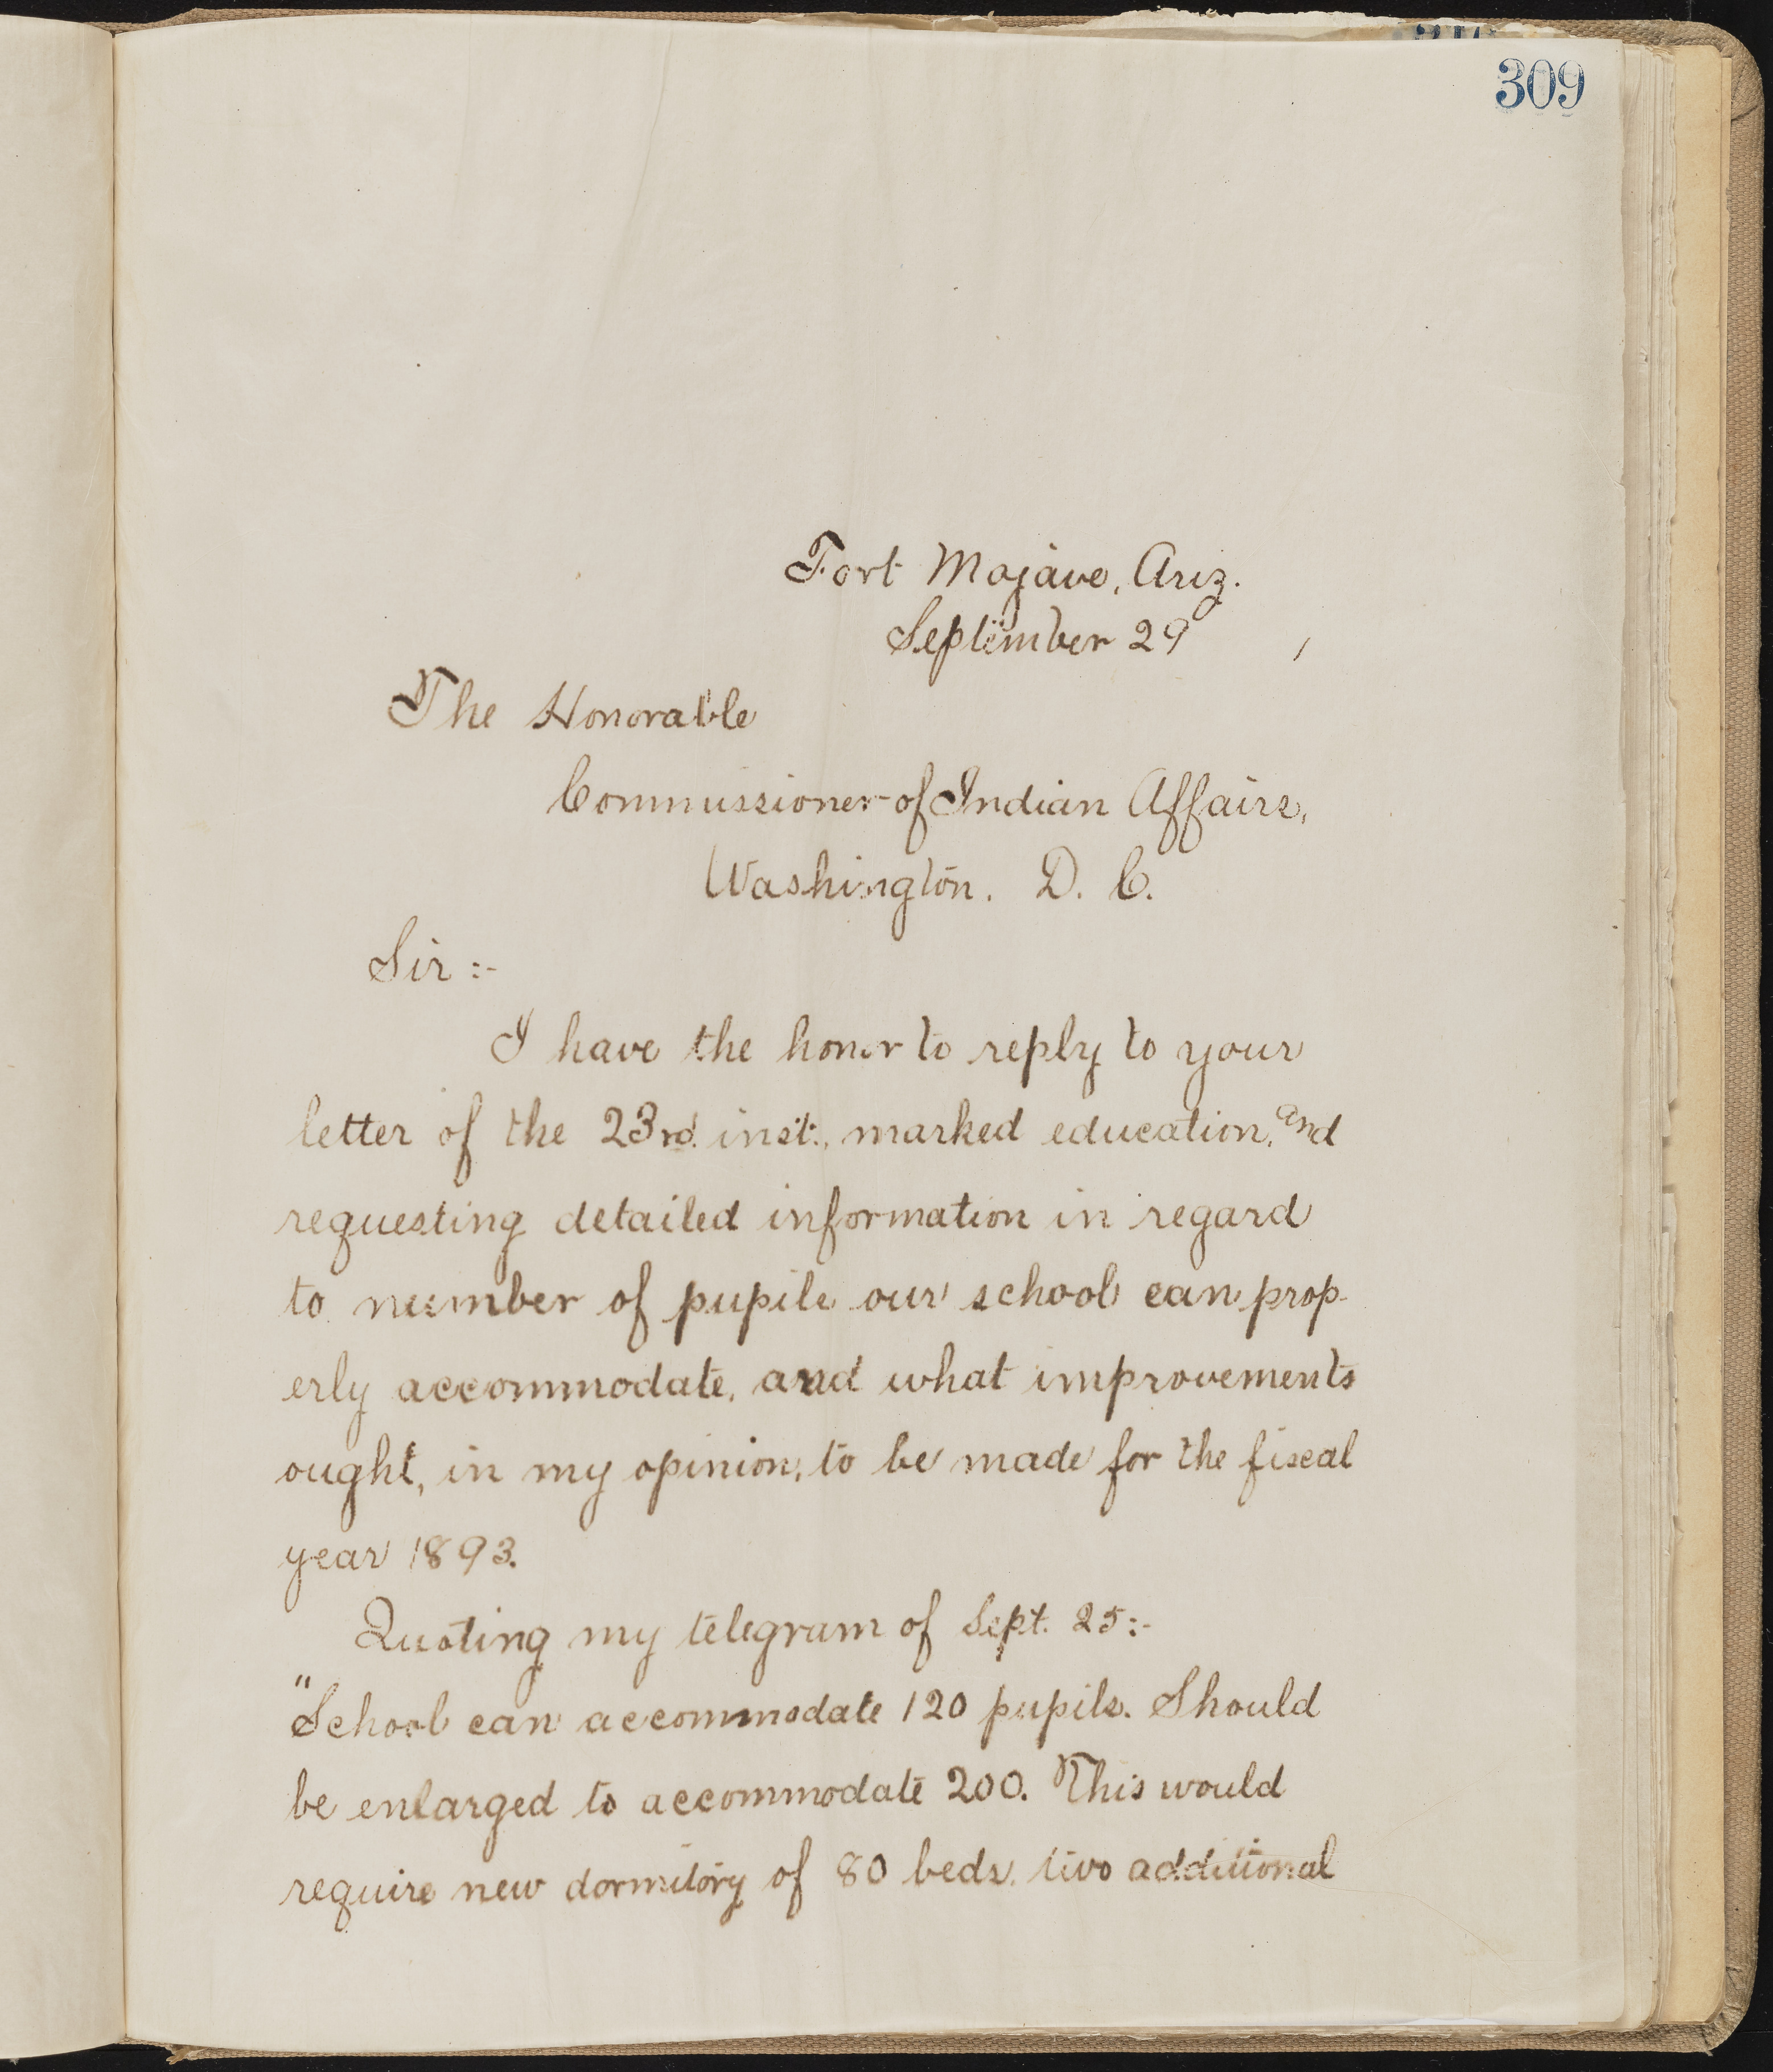 309
Fort Mojave, Ariz.
September 29
The Honorable
Commissioner of Indian Affairs,
Washington. D. C.
Sir :-
I have the honor to reply to your
letter of the 23rd. inst., marked education, and
requesting detailed information in regard
to number of pupils our school can prop-
erly accommodate, and what improvements
ought, in my opinion, to be made for the fiscal
year 1893.
Quoting my telegram of Sept. 25:-
"School can accommodate 120 pupils. Should
be enlarged to accommodate 200. This would
require new dormitory of 80 beds, two additional